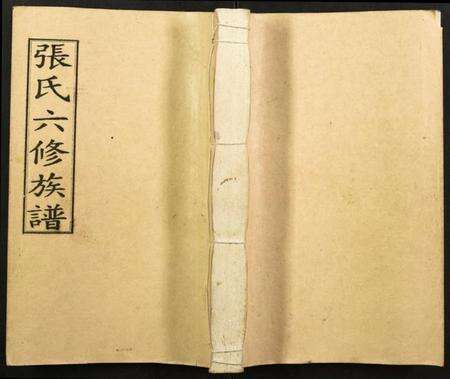 張氏六修族譜